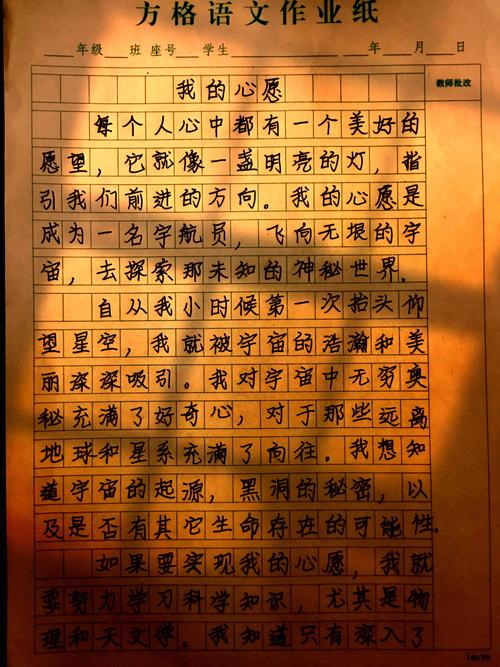 方格语文作业纸
____年级___班 座号___学生____________ ___年___月___日
教师批改
我的心愿
每个人心中都有一个美好的
愿望，它就像一盏明亮的灯，指
引我们前进的方向。我的心愿是
成为一名宇航员，飞向无垠的宇
宙，去探索那未知的神秘世界。
自从我小时候第一次抬头仰
望星空，我就被宇宙的浩瀚和美
丽深深吸引。我对宇宙中无穷奥
秘充满了好奇心，对于那些远离
地球和星系充满了向往。我想知
道宇宙的起源，黑洞的秘密，以
及是否有其它生命存在的可能性。
如果要实现我的心愿，我就
要努力学习科学知识，尤其是物
理和天文学。我知道只有深入了